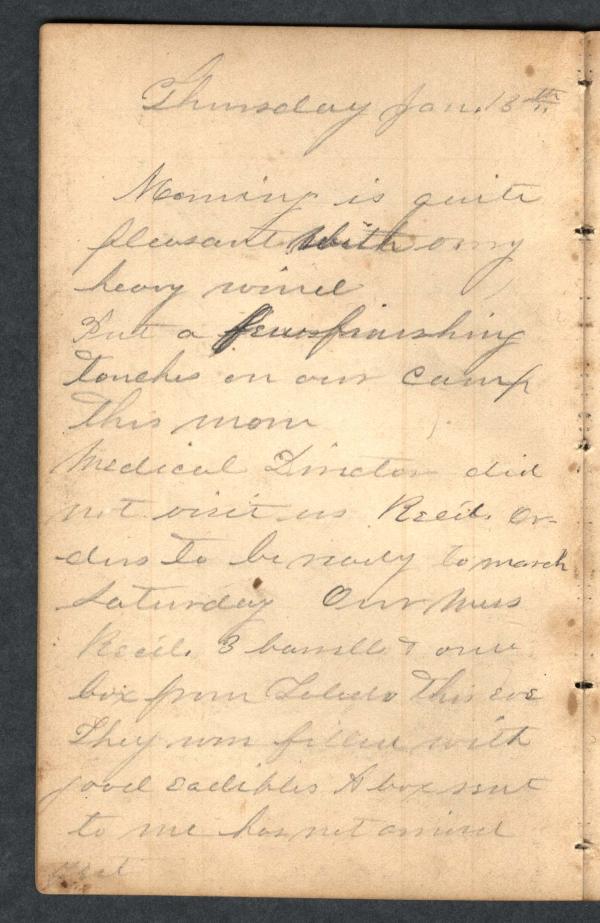 Thursday Jan. 13th
Morning is quite
pleasant with
heavy wind
Put a few finishing
touches on our camp
this morn
Medical Director did
not visit us Recd. Or-
ders to be ready to march
Saturday Our mess
Recd. 3 barrells & one
box from Toledo this eve
They were filled with
good eadibles A box sent
to me has not arrived